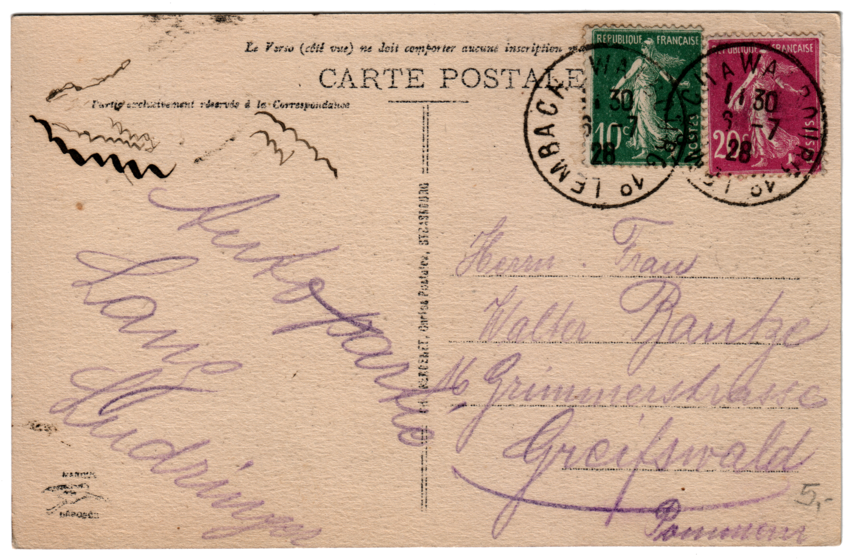 Le Verso (côté vue) ne doit comporter aucune inscription
CARTE POSTALE
Partie exclusivement réservée à la Correspondance
RÉPUBLIQUE FRANÇAISE
10c
POSTES
RÉPUBLIQUE FRANÇAISE
20c
POSTES
LEMBACH
11 30
6 -7
28
11 30
6 -7
28
Autopartie
Lang
Herrn Frau
Walter Bantze
16 Grimmerstrasse
Greifswald
Pommern
Cartes Postales, STRASBOURG
MARQUE
DÉPOSÉE
5,-